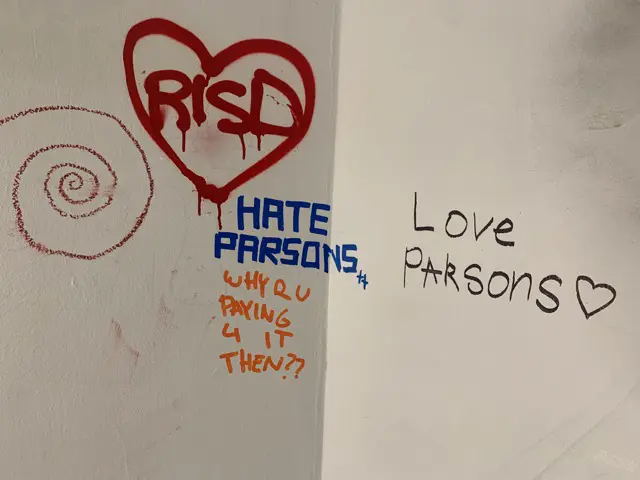 RISD
HATE
PARSONS
WHY R U
PAYING
4 IT
THEN??
Love
PARSONS